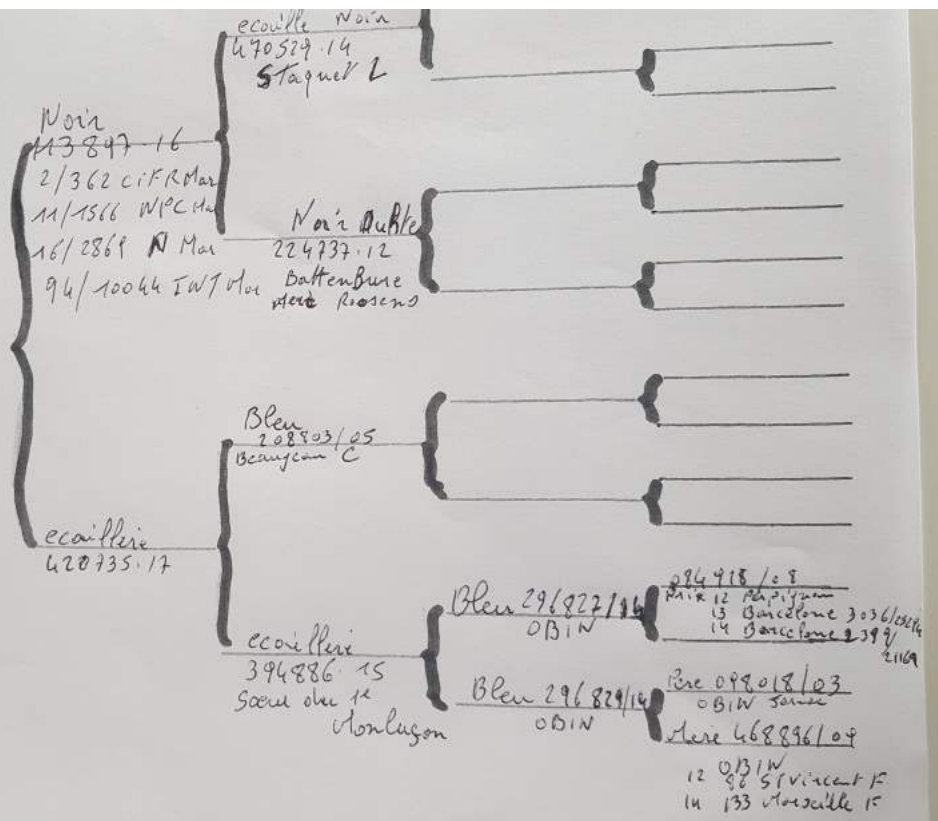 ecaille Noir
470529.14
Staquet L
Noir
113897-16
2/362 CiFR Mar
11/1566 NPC Ma
16/2869 N Mar
94/10044 INT Mar
Noir
224737.12
BattenBure
Mere Roosens
Bleu
208803/05
Beaujean C
ecaillere
420735.17
ecaillere
394886.15
Soeur du 1e
Monluçon
Bleu 296827/14
OBIN
Bleu 296829/14
OBIN
084928/08
Prix 12 Perpignan
13 Barcelone 3036/
14 Barcelone 2399/
21169
Pere 098018/03
OBIN
Mere 468896/09
OBIN
12 86 St Vincent F
14 133 Marseille F